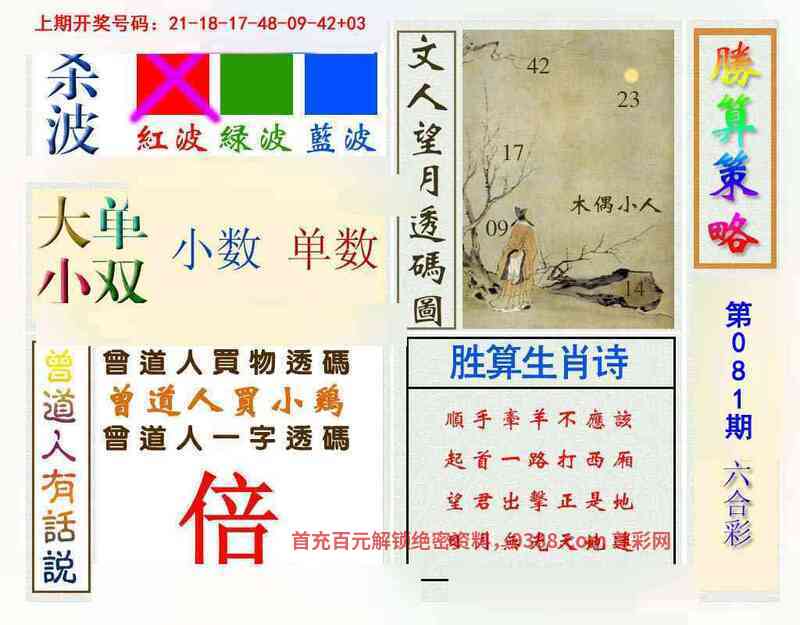 上期开奖号码：21-18-17-48-09-42+03
杀波
紅波 緑波 藍波
大小 单双
小数 单数
曾道人有話説
曾道人買物透碼
曾道人買小鷄
曾道人一字透碼
倍
文人望月透碼圖
42
23
17
木偶小人
09
14
胜算生肖诗
順手牽羊不應該
起首一路打西厢
望君出擊正是地
日月無光天地連
首充百元解锁绝密资料,
勝算策略
第081期
六合彩